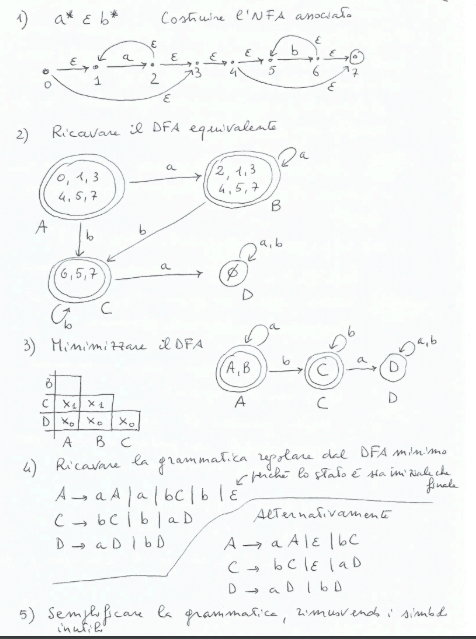 1) a* ε b* Costruire l'NFA associato
ε a ε ε ε b ε ε ε ε ε
0 1 2 3 4 5 6 7
2) Ricavare il DFA equivalente
0, 1, 3
4, 5, 7
a
2, 1, 3
4, 5, 7
a
A
B
b
b
6, 5, 7
C
b
a
∅
D
a, b
3) Minimizzare il DFA
A, B
A
a
b
C
C
b
a
D
D
a, b
B
C X1 X1
D X0 X0 X0
A B C
4) Ricavare la grammatica regolare dal DFA minimo
perché lo stato è sia iniziale che
finale
A → aA | a | bC | b | ε
C → bC | b | aD
D → aD | bD
Alternativamente
A → aA | ε | bC
C → bC | ε | aD
D → aD | bD
5) Semplificare la grammatica, rimuovendo i simboli
inutili